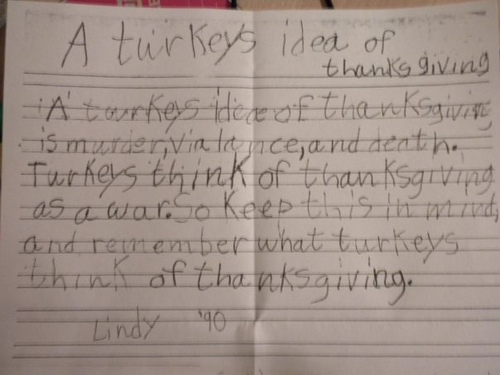 A turkeys idea of
thanksgiving
A turkeys idea of thanksgiving
is murder, vialence, and death.
Turkeys think of thanksgiving
as a war. So keep this in mind,
and remember what turkeys
think of thanksgiving.
Lindy '90